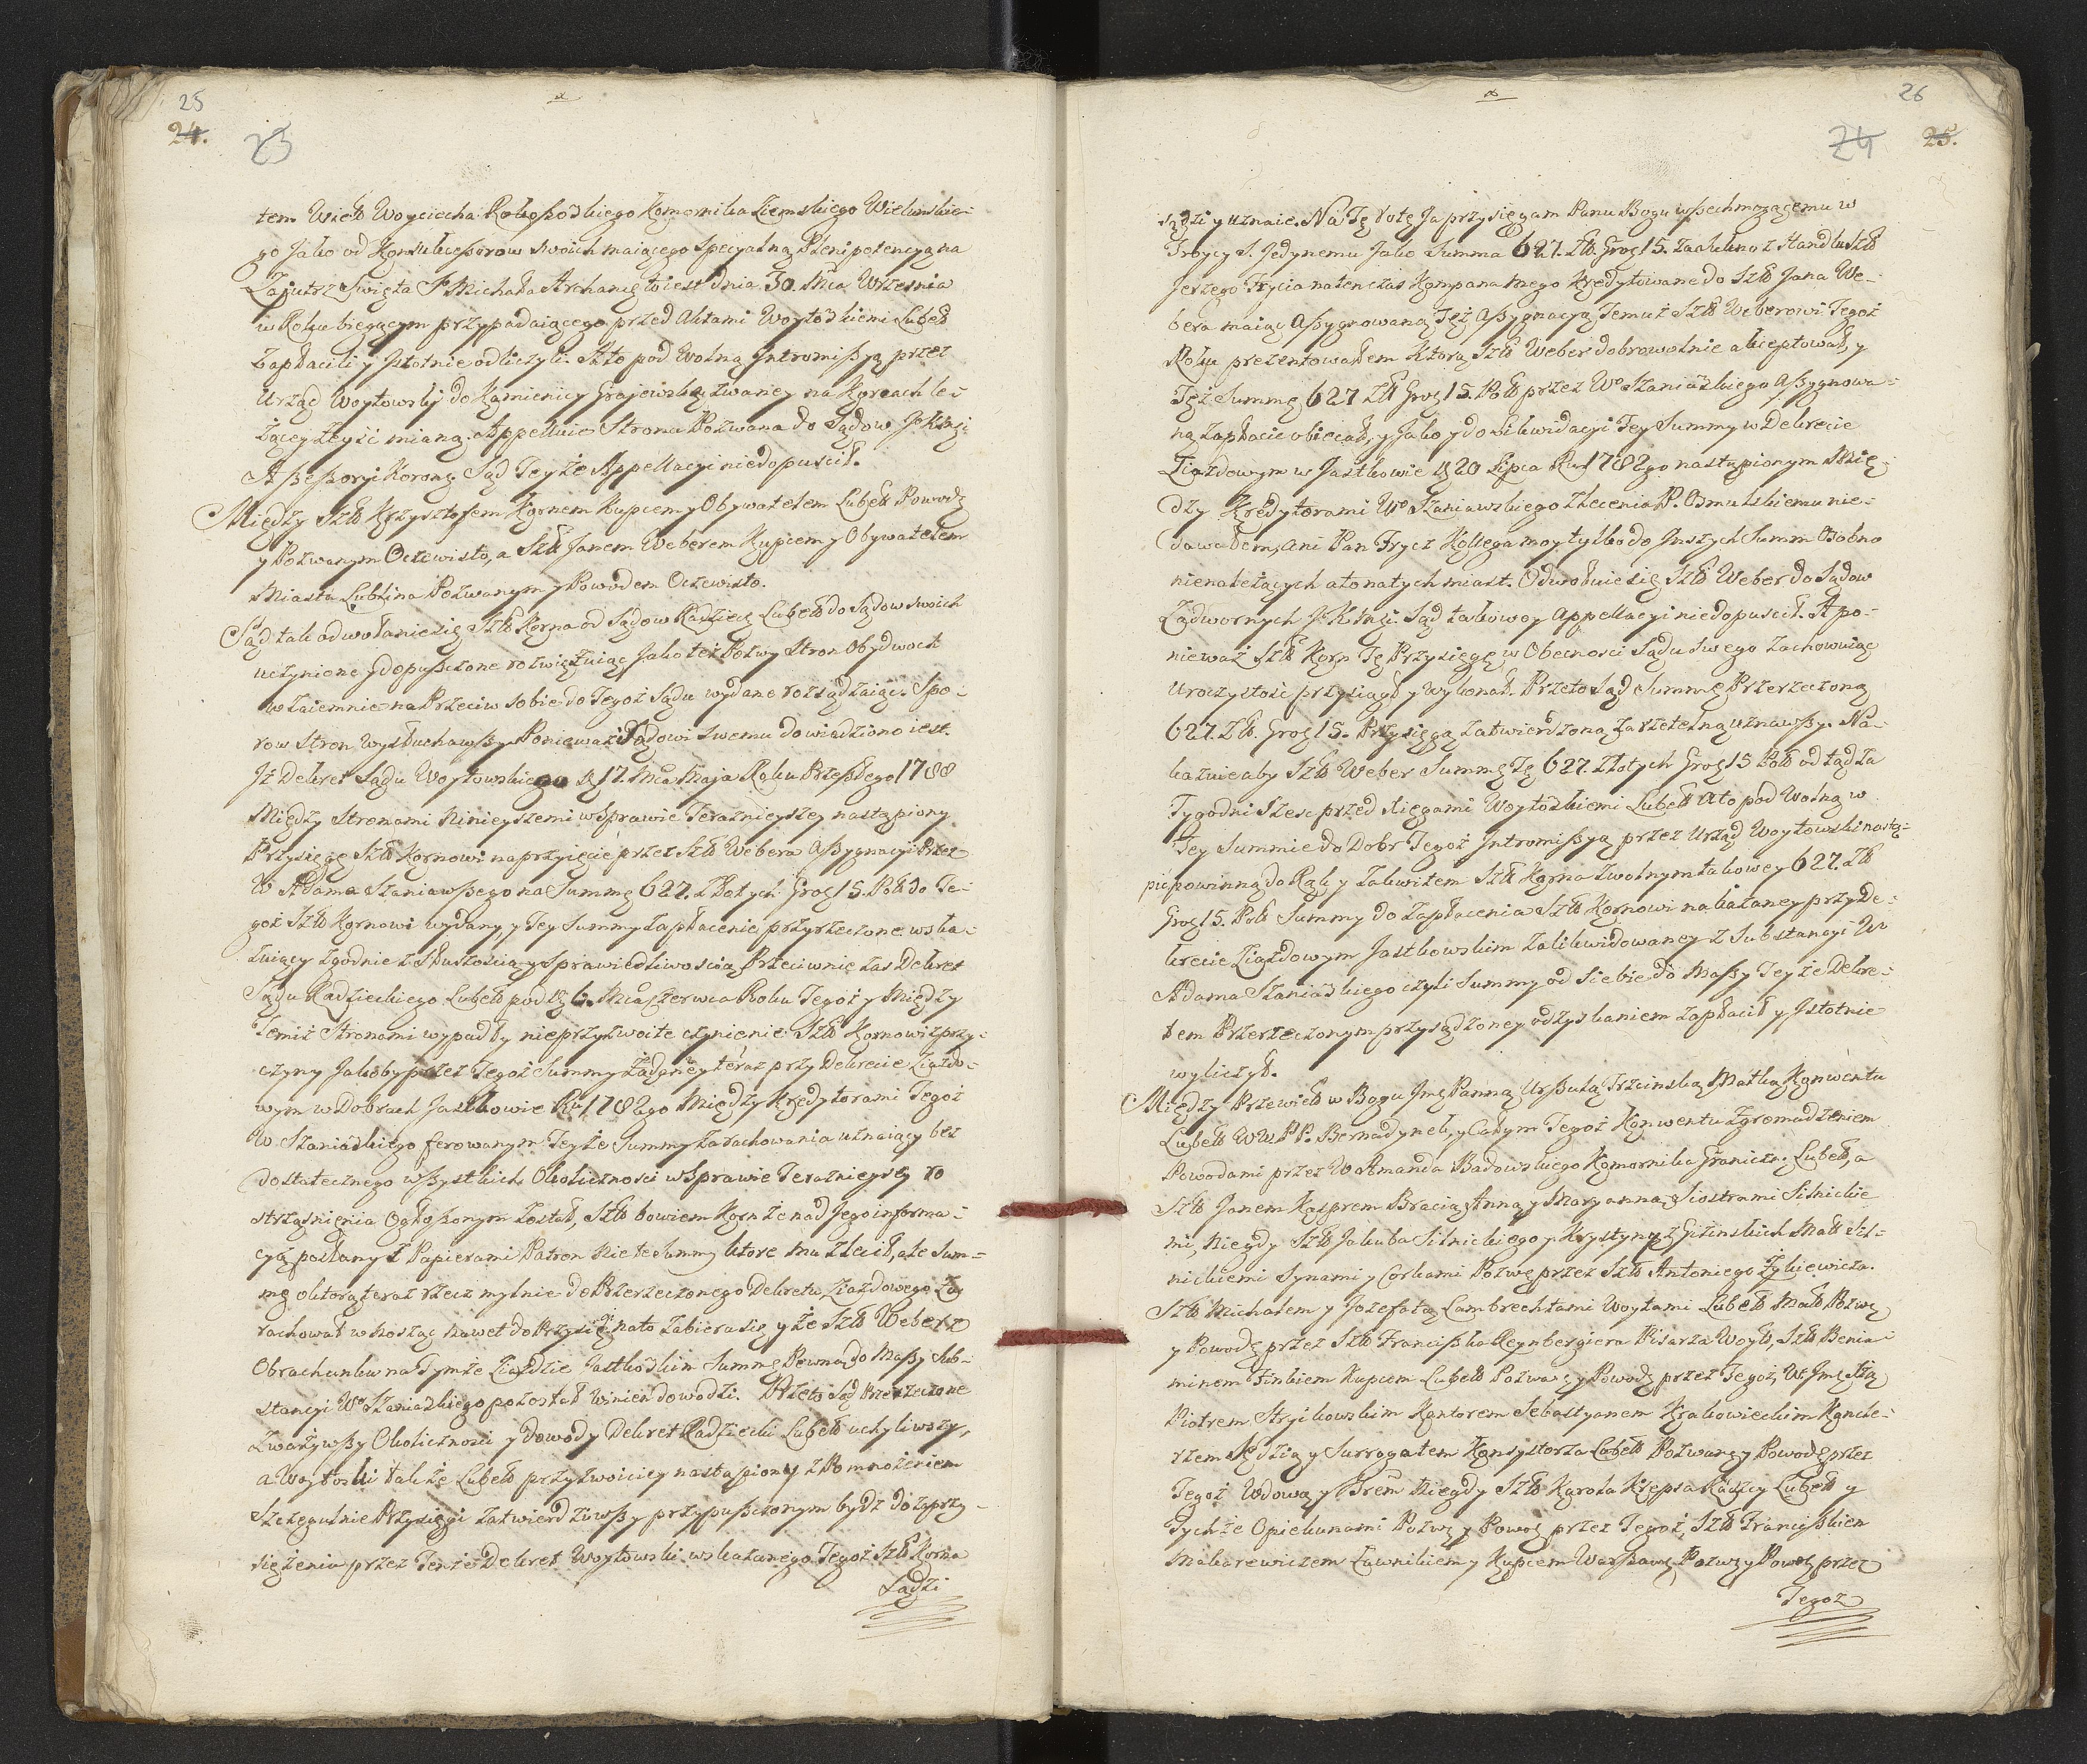 25
24.
23
tem Wielb Woyciecha Kolkowskiego Komornika Ziemskiego Wielunskie-
go Jako od Konsukcessorow swoich maiącego specyalną Plenipotencyą na
Zajutrz Swięta S Michała Archanię to iest dnia 30. Mca Wrzesnia
w Roku bieżącym przypadaiącego przed Aktami Woytoskiemi Lubel
zapłacili y Jstotnie odliczyli. A to pod Wolną Jntromissyą przez
Urząd Woytowski do Kamienicy Grajewską zwaney na Korcach le-
żącey zeyść mianą. Appelluie Strona Pozwana do Sądow JKMci
Assessoryi Koronę Sąd Teyże Appellacyi niedopuscił.
Między Szl Krzysztofem Kornem Kupcem y Obywatelem Lubel Powodę
y Pozwanym Oczewisto, a Szl Janem Weberem Kupcem y Obywatelem
Miasta Lublina Pozwanym y Powodem Oczewisto.
Sąd tak odwołanie się Szl Korna od Sądow Radziec Lubel do Sądow swoich
uczynione y dopuszczone rozwięzuiąc Jako też Pozwy Stron Obydwoch
wzaiemnie na Przeciw sobie do Tegoż Sądu wydane rozsądzaiąc. Spo-
row Stron wysłuchawszy Ponieważ Sądowi swemu dowiedziono iest.
Jż Dekret Sądu Woytowskiego d 17. Mca Maja Roku Przeszłego 1788
Między Stronami Ninieyszemi w Sprawie Teraznieyszey nastąpiony
Przysięgę Szl Kornowi na przyięcie przez Szl Webera Assygnacyi Przez
W Adama Szaniawskiego na Summę 627. Złotych Groq 15. Pol do Te-
goż Szl Kornowi wydany y Tey Summy zapłacenie przyrzeczone wska-
zuiący zgodnie z Słusznoscią y Sprawiedliwoscią Przeciwnie zas Dekret
Sądu Radzieckiego Lubel pod d 6. Mca Czerwca Roku Tegoż y Między
Temiż Stronami wypadły nieprzyzwoite czynienie Szl Kornowi z przy-
czyny Jakoby przez Tegoż Summy Żądaney teraz przy Dekrecie Ziazdo-
wym w Dobrach Jastkowie Ru 1782go Między Kredytorami Tegoż
W Szaniaskiego ferowanym Teyże Summy zarachowania uznaiący bez
dostatecznego wszystkich Okolicznosci w Sprawie Teraznieyszey ro
strząsnięnia Ogłoszonym został, Szl bowiem Korn że nad Jego informa-
cyą posłany z Papierami Patron Nie te Summy ktore mu zlecił, ale Sum-
mę o ktorą teraz rzecz mylnie do Przerzeczonego Dekretu Ziazdowego Za
rachował wnosząc nawet do Przysięgi na to zabiera się y że Szl Weber z
Obrachunku na Tymże Ziazdzie Jastkoskim Summę Pewną do Massy Sub-
stancyi Wo Szaniaskiego pozostał Winien dowodzi. Przeto Sąd Przerzeczone
Zważywszy Okolicznosci y dowody Dekret Radziecki Lubel uchyliwszy,
a Woytoski takze Lubel przyzwoiciey nastąpiony z Pomnożeniem
Szczegulnie Przysięgi zatwierdziwszy przypuszczonym bydz do zaprzy-
siężenia przez Tenże Dekret Woytowski wskazanego Tegoż Szl Korna
Sądzi
26
24 25.
sądzi y uznaie. Na Tę rotę Ja przysięgam Panu Bogu wszechmogącemu w
Troycy S. Jedynemu Jako Summa 627. Zł. Groq 15. Za sukno z Handlu Szl
Jerzego Frycia natenczas Kompana mego Kredytowane do Szl Jana We-
bera maiąc Assygnowaną Tęż Assygnacyą Temuż Szl Weberowi Tegoż
Roku prezentowałem Ktorą Szl Weber dobrowolnie akceptował, y
Tęż Summę 627 Zł Groq 15. Pol przez Wo Szaniaskiego Assygnowa-
ną Zapłacic obiecał, y Jako y do Likwidacyi Tey Summy w Dekrecie
Ziazdowym w Jastkowie d 20 Lipca Ru 1782go nastąpionym Mię-
dzy Kredytorami Wo Szaniawskiego zlecenia P. Osmulskiemu nie-
dawałem, ani Pan Frycz Kollega moy tylko do Jnszych Summ Osobno
nienależących a to natychmiast. Odwołuie się Szl Weber do Sądow
Zadwornych JKMci. Sąd takowey Appellacyi niedopuscił. A po-
nieważ Szl Korn Tę Przysięgę w Obecnosci Sądu swego zachowuiąc
uroczystosc przysiągł y wykonał. Przeto Sąd Summę Przerzeczoną
627. Zł. Groq 15. Przysięgą zatwierdzoną za rzetelną uznawszy. Na-
kazuie aby Szl Weber Summę Tę 627. Złotych Groq 15 Pol od tąd za
Tygodni Szesc przed Xięgami Woytoskiemi Lubel a to pod Wolną w
Tey Summie do Dobr Tegoż Jntromissyą przez Urząd Woytowski nastą-
pic powinną do Rąk y za kwitem Szl Korna zwolnym takowey 627. Zł
Groq 15. Pol Summy do zapłacenia Szl Kornowi nakazaney przy De-
krecie Ziazdowym Jastkowskim zalikwidowaney z Substancyi Ur
Adama Szaniaskiego czyli Summy od siebie do Massy Teyże Dekre-
tem Przerzeczonym przysądzoney odzyskaniem zapłacił y Jstotnie
wyliczył.
Między Przewiel w Bogu Jmę Panną Urszulą Trzcinską Matką Konwentu
Lubel WW. PP. Bernadynek, y Całym Tegoż Konwentu Zgromadzeniem
Powodami przez W Amanda Badowskiego Komornika Granicz. Lubel, a
Szl Janem Kasprem Bracią Anną y Maryanną Siostrami Silnickie
mi, Niegdy Szl Jakuba Silnickiego y Krystyny z Giżinskich Małż Sil-
nickiemi Synami y Corkami Pozwę przez Szl Antoniego Żykiewicza.
Szl Michałem y Jozefatą Lambrechtami Woytami Lubel Małż Pozwę
y Powodę przez Szl Franciszka Reynbergiera Pisarza Woyto, Szl Benia-
minem Finkiem Kupcem Lubel Pozwanę y Powodę przez Tegoż, W Jmę Xię
Piotrem Stryikowskim Kantorem Sebastyanem Krakowieckim Kancle-
rzem Sędzią y Surrogatem Konsystorza Lubel Pozwanę y Powodę przez
Tegoż Wdową y Niegdy Szl Karola Krepsa Radzcy Lubel y
Tychże Opiekunami Pozwę y Powodę przez Tegoż, Szl Franciszkiem
Makarewiczem Ławnikiem y Kupcem Warszawę Pozwę y Powodę przez
Tegoż